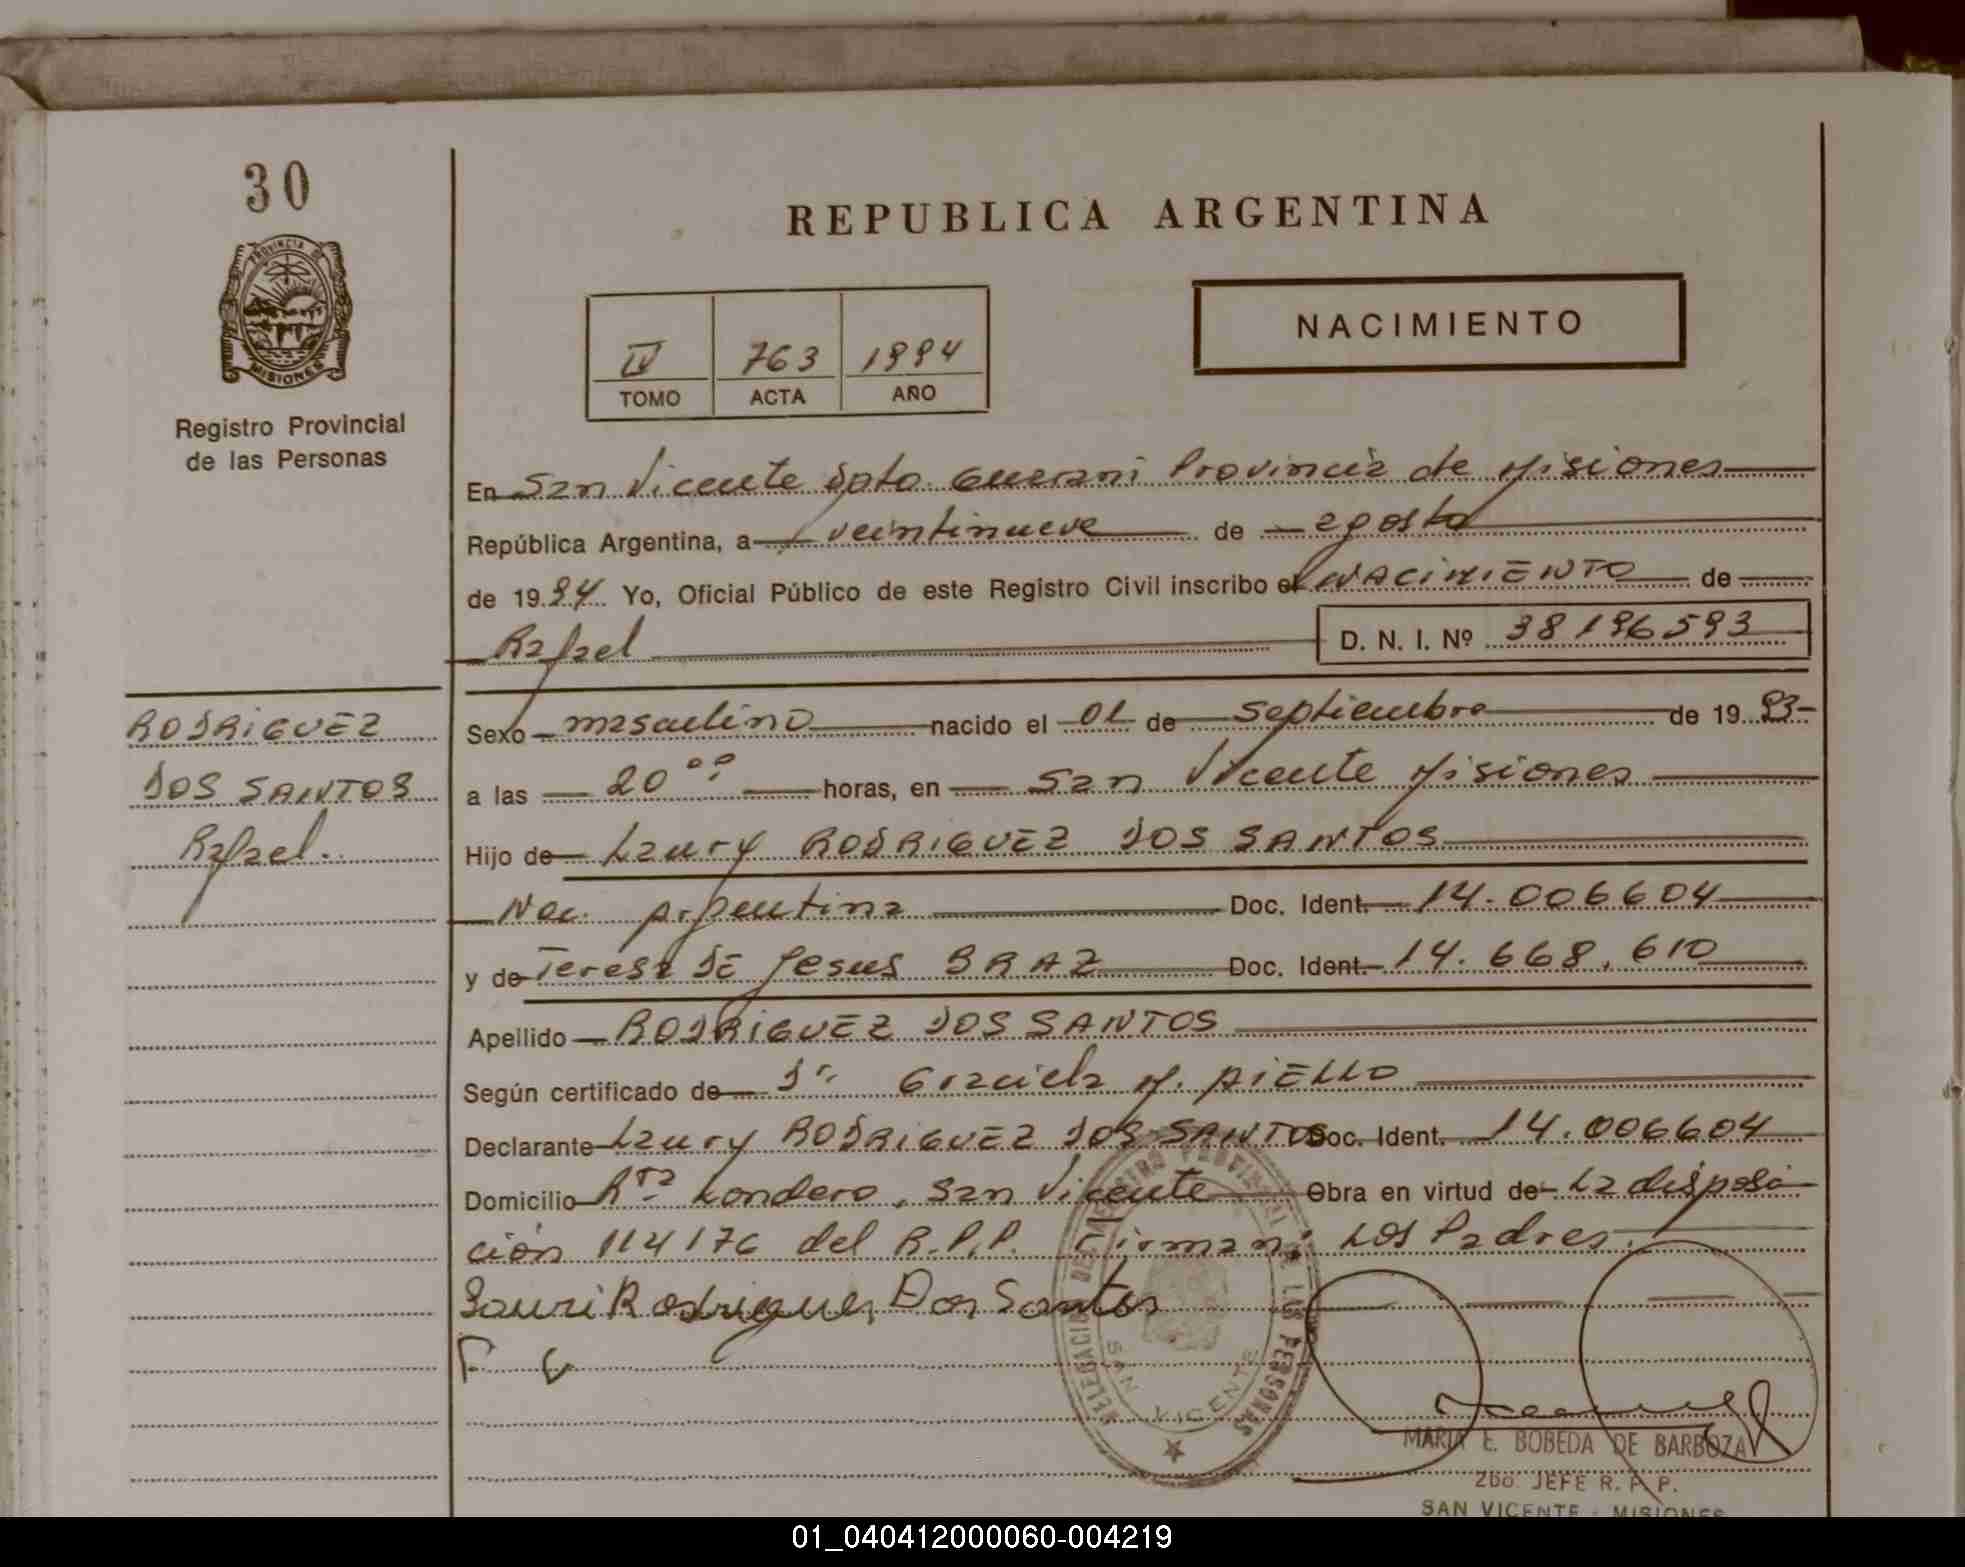 30
PROVINCIA DE
MISIONES
Registro Provincial
de las Personas
REPUBLICA ARGENTINA
IV 763 1994
TOMO ACTA AÑO
NACIMIENTO
En San Vicente Dpto. Guarani Provincia de Misiones
República Argentina, a veintinueve de agosto
de 1994 Yo, Oficial Público de este Registro Civil inscribo el NACIMIENTO de
Rafael D. N. I. Nº 38196593
RODRIGUEZ
DOS SANTOS
Rafael.
Sexo masculino nacido el 01 de septiembre de 1993
a las 20 00 horas, en San Vicente Misiones
Hijo de Laury RODRIGUEZ DOS SANTOS
Nac. Argentina Doc. Ident. 14.006604
y de Teresa DE Jesus BRAZ Doc. Ident. 14.668.610
Apellido RODRIGUEZ DOS SANTOS
Según certificado de Dr. Graciela M. AIELLO
Declarante Laury RODRIGUEZ DOS SANTOS Doc. Ident. 14.006604
Domicilio Rta Londero, San Vicente Obra en virtud de La disposi
ción 114176 del R.P.P. Firman: Los Padres.
Lauri Rodrigues Dos Santos
DELEGACION DEL REGISTRO PROVINCIAL DE LAS PERSONAS
SAN VICENTE
MARIA E. BOBEDA DE BARBOZA
2DO. JEFE R. P. P.
SAN VICENTE - MISIONES
01_040412000060-004219